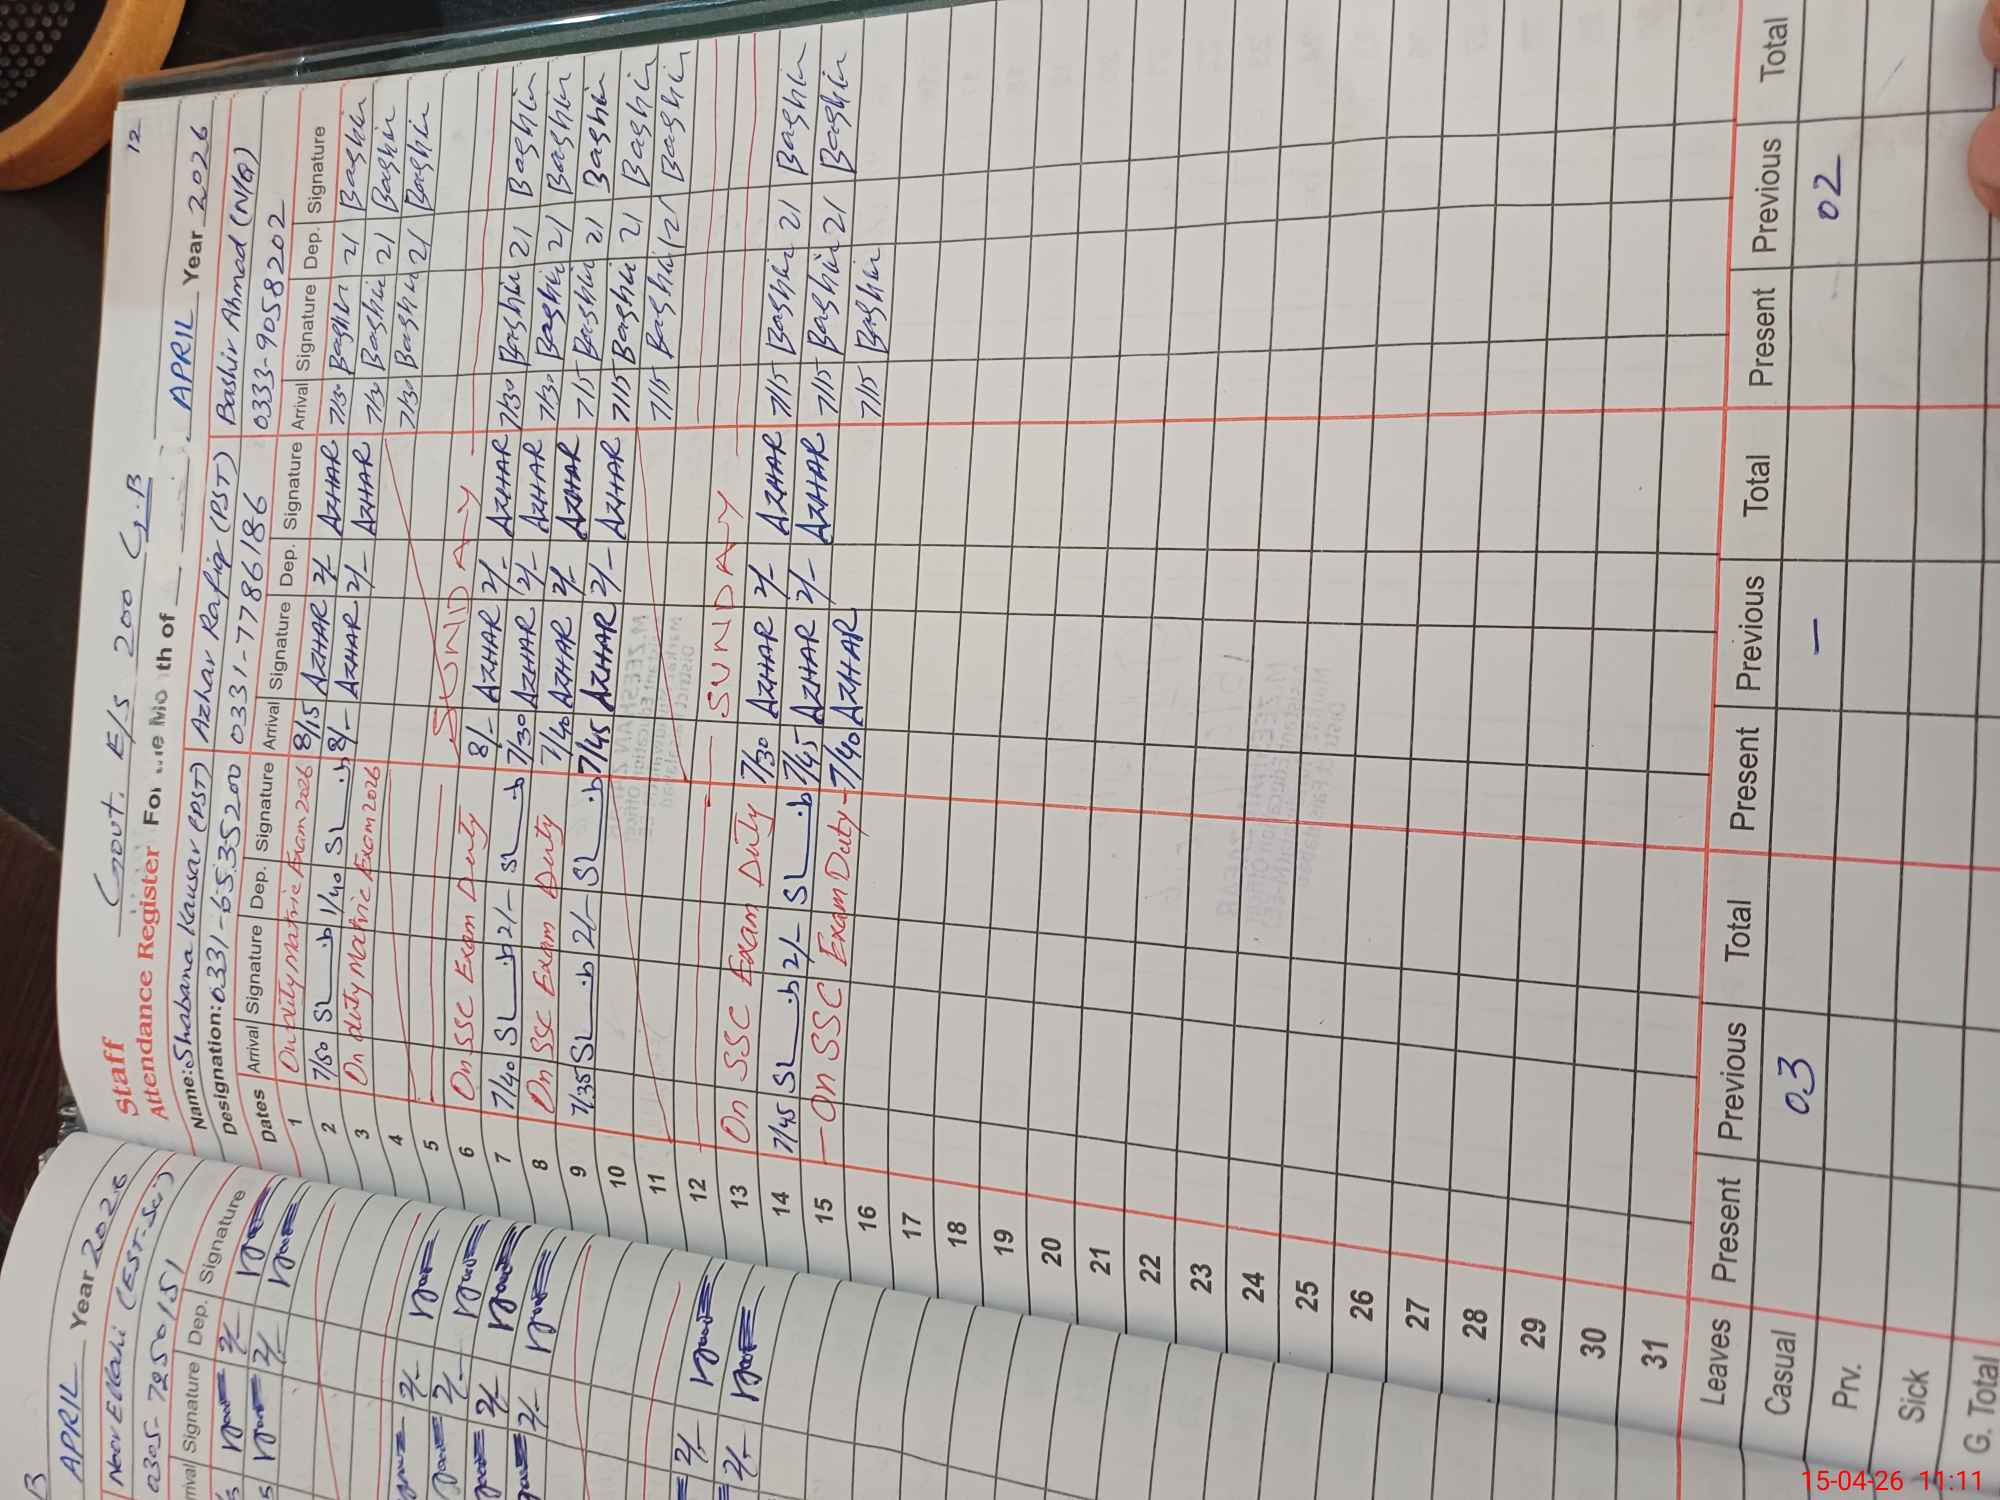 Govt. E/S 200 G.B
12
Staff
Attendance Register For the Month of APRIL Year 2026
Name: Shabana Kausar (PST) Azhar Rafiq (PST) Bashir Ahmad (N/Q)
Designation: 0331-6535200 0331-7786186 0333-9058202
Dates Arrival Signature Dep. Signature Arrival Signature Dep. Signature Arrival Signature Dep. Signature
1 On duty Matric Exam 2026 8/15 AZHAR 2/- AZHAR 7/30 Bashir 2/ Bashir
2 7/50 1/40 8/- AZHAR 2/- AZHAR 7/30 Bashir 2/ Bashir
3 On duty Matric Exam 2026 7/30 Bashir 2/ Bashir
4
5 SUNDAY
6 On SSC Exam Duty 8/- AZHAR 2/- AZHAR 7/30 Bashir 2/ Bashir
7 7/40 2/- 7/30 AZHAR 2/- AZHAR 7/30 Bashir 2/ Bashir
8 On SSC Exam Duty 7/40 AZHAR 2/- AZHAR 7/15 Bashir 2/ Bashir
9 7/35 2/- 7/45 AZHAR 2/- AZHAR 7/15 Bashir 2/ Bashir
10 7/15 Bashir 12/ Bashir
11
12 SUNDAY
13 On SSC Exam Duty 7/30 AZHAR 2/- AZHAR 7/15 Bashir 2/ Bashir
14 7/45 2/- 7/45 AZHAR 2/- AZHAR 7/15 Bashir 2/ Bashir
15 On SSC Exam Duty 7/40 AZHAR 7/15 Bashir
16
17
18
19
20
21
22
23
24
25
26
27
28
29
30
31
Leaves Present Previous Total Present Previous Total Present Previous Total
Casual 03 – 02
Prv.
Sick
G. Total
B
APRIL Year 2026
Noor Ellahi (EST-Sci)
0305-7250151
Arrival Signature Dep. Signature
15-04-26 11:11